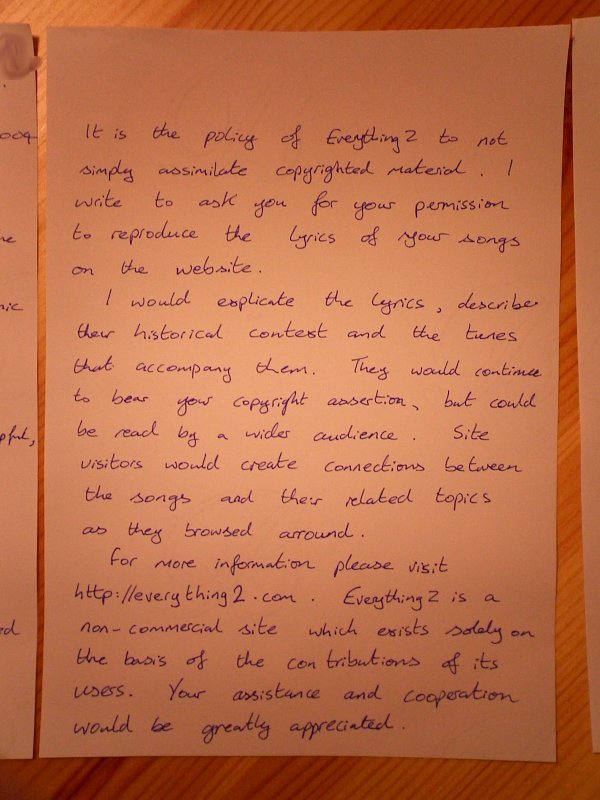 It is the policy of Everything2 to not
simply assimilate copyrighted material. I
write to ask you for your permission
to reproduce the lyrics of your songs
on the website.
I would explicate the lyrics, describe
their historical context and the tunes
that accompany them. They would continue
to bear your copyright assertion, but could
be read by a wider audience. Site
visitors would create connections between
the songs and their related topics
as they browsed arround.
For more information please visit
http://everything2.com. Everything2 is a
non-commercial site which exists solely on
the basis of the contributions of its
users. Your assistance and cooperation
would be greatly appreciated.